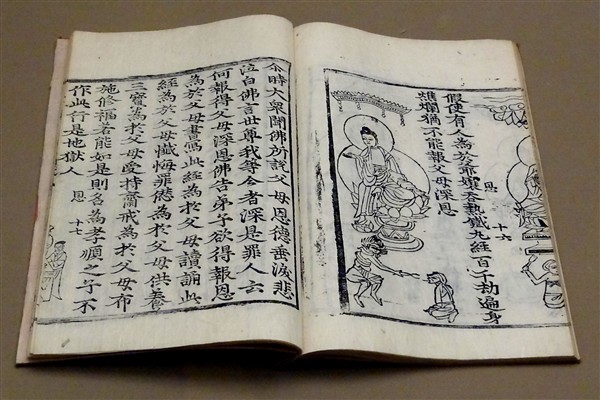 恩 十六
假使有人為於爺孃吞熱鐵丸經百千劫遍身
燋爛猶不能報父母深恩
尒時大衆聞佛所說父母恩德垂淚悲
泣白佛言世尊我等今者深是罪人云
何報得父母深恩佛告弟子欲得報恩
為於父母書寫此經為於父母讀誦此
經為於父母懺悔罪愆為於父母供養
三寶為於父母受持齋戒為於父母布
施修福若能如是則名為孝順之子不
作此行是地獄人
恩 十七